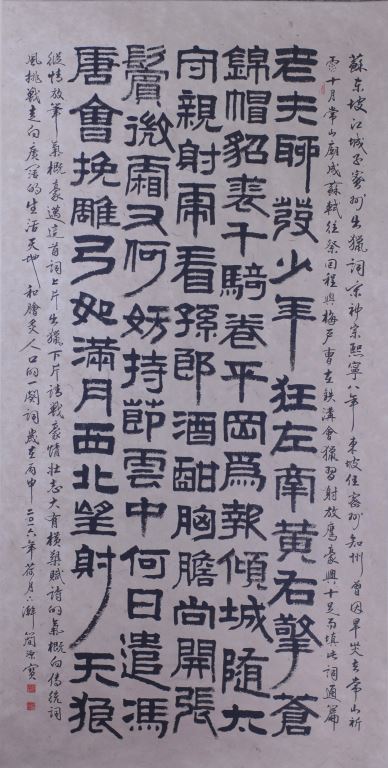 蘇東坡江城子密州出獵詞宋神宗熙寧八年東坡任密州知州曾因旱災去常山祈
雨十月常山廟成蘇軾往祭回程與梅戶曹在鐵溝會獵習射放鷹豪興十足而填此詞通篇
老夫聊發少年狂左牽黃右擎蒼
錦帽貂裘千騎卷平岡爲報傾城隨太
守親射虎看孫郎酒酣胸膽尚開張
鬢微霜又何妨持節雲中何日遣馮
唐會挽雕弓如滿月西北望射天狼
縱情放筆氣概豪邁這首詞上片出獵下片請戰豪情壯志大有橫槊賦詩的氣概向傳統詞
風挑戰走向廣闊的生活天地和膾炙人口的一闋詞歲在丙申二〇一六年荷月